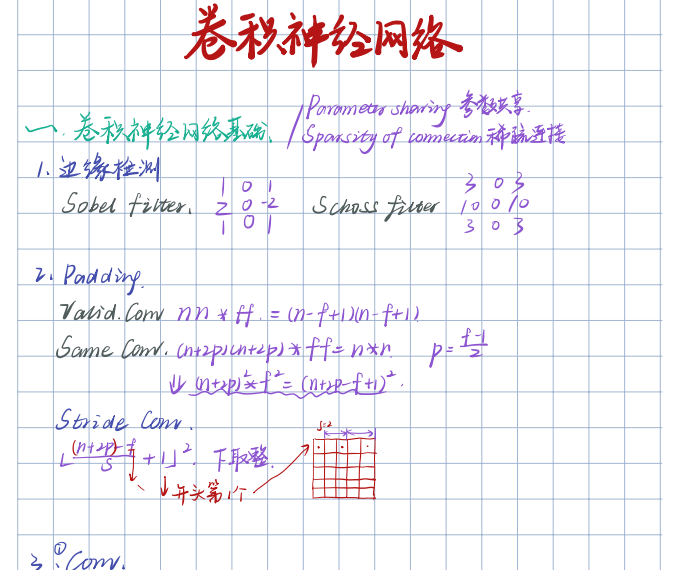 卷积神经网络
一. 卷积神经网络基础. / Parameter sharing 参数共享.
Sparsity of connection 稀疏连接
1. 边缘检测
Sobel filter. 1 0 1 Schoss filter 3 0 3
2 0 -2 10 0 10
1 0 1 3 0 3
2. Padding.
Valid. Conv nn * ff. = (n-f+1)(n-f+1)
Same Conv. (n+2p)(n+2p) * ff = n*n. p = (f-1)/2
↓ (n+2p)² * f² = (n+2p-f+1)².
Stride Conv. s=2
⌊((n+2p)-f)/S + 1⌋². 下取整.
↓ ↓ 开头第1个
3. ① Conv.